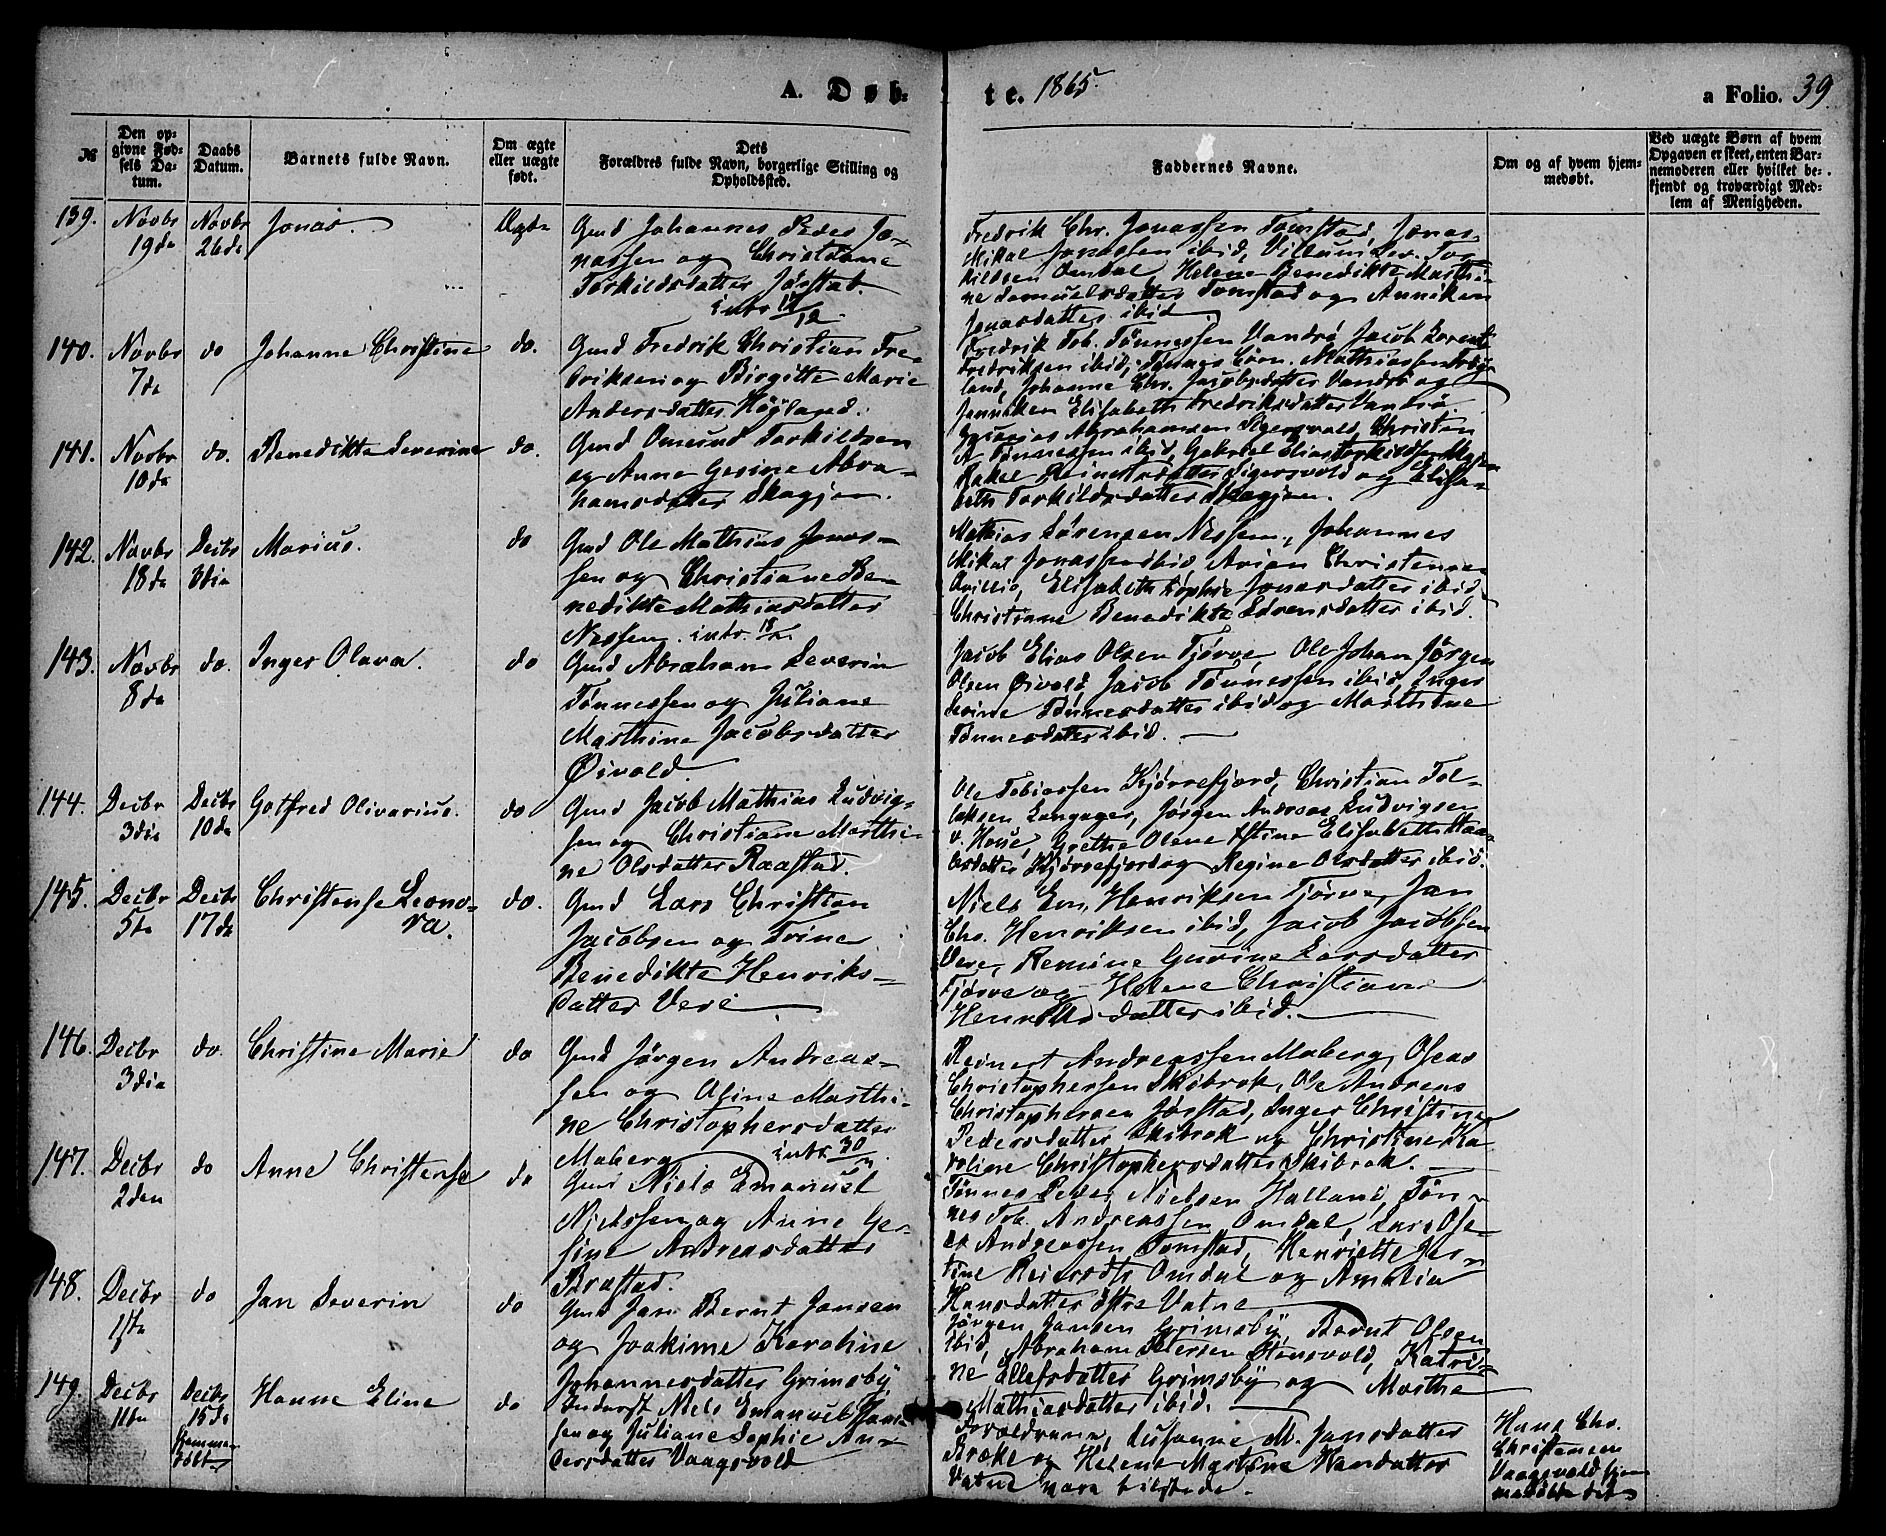 A. Døb-
te. 1865.
a Folio. 39
№
Den opgivne Fødsels Datum.
Daabs Datum.
Barnets fulde Navn.
Om ægte eller uægte født.
Dets Forældres fulde Navn, borgerlige Stilling og Opholdssted.
Faddernes Navne.
Om og af hvem hjemmedøbt.
Ved uægte Børn af hvem Opgaven er skeet, enten Barnemoderen eller hvilket bekjendt og troværdigt Medlem af Menigheden.
139.
Novbr
19de
Novbr
26de
Jonas.
Ægte
Gmd Johannes Peder Jo-
nassen og Christiane
Torkildsdatter Jørstad.
intr. 17/12
Fredrik Chr. Jonassen Tomstad, Jonas
Mikal Jonassen ibid, Villum Sev. Tor
kildsen Omdal, Helene Benedikte Marthi-
ne Samuelsdatter Tomstad og Anniken
Jonasdatter ibid
140.
Novbr
7de
do
Johanne Christine
do.
Gmd Fredrik Christian Fre-
driksen og Birgitte Marie
Andersdatter Høyland.
Fredrik Tob. Tønnessen Vandrø Jacob Lorent
Fredriksen ibid, Tønnes Mathiassen
land, Johanne Chr. Jacobsdatter Vandrø og
Janniken Elisabeth Fredriksdatter Vandrø
141.
Novbr
10de
do.
Benedikte Severine
do.
Gmd Omund Torkildsen
og Anne Gesine Abra-
hamsdatter Skagjen.
Abrahamsen Sigersvold, Christen
A. Tønnessen ibid, Gabriel Elias Torkildsen
Rakel Reinertsdatter Sigersvold og Elisa-
beth Torkildsdatter Skagjen.
142.
Novbr
18de
Decbr
3die
Marius.
do
Gmd Ole Mathias Jonas-
sen og Christiane Be-
nedikte Mathiasdatter
Nessem. intr.
Mathias Sørensen Nessem, Johannes
Mikal Jonassen ibid, Arian Christensen
Elisabeth Sophie Jonasdatter ibid
Christiane Benedikte Sørensdatter ibid.
143.
Novbr
8de
do.
Inger Olava.
do
Gmd Abraham Severin
Tønnessen og Juliane
Marthine Jacobsdatter
Øivold.
Jacob Elias Olsen Tjørve, Ole Johan Jørgen
Olsen Øivold, Jacob Tønnessen ibid, Inger
Serine Tønnesdatter ibid og Marthine
Tønnesdatter ibid.
144.
Decbr
3die
Decbr
10de
Gotfred Olivarius.
do
Gmd Jacob Mathias Ludvig-
sen og Christiane Marthi-
ne Olsdatter Raastad.
Ole Tobiassen Kjørrefjord, Christian Tol-
laksen Langager, Jørgen Andreas Ludvigsen
v. Houe, Grethe Olene Elisabeth
datter Kjørrefjord og Regine Olsdatter ibid.
145.
Decbr
5te
Decbr
17de
Christense Leono-
ra.
do.
Gmd Lars Christian
Jacobsen og Trine
Benedikte Henriks-
datter Vere
Niels Em. Henriksen Tjørve, Jan
Chr. Henriksen ibid, Jacob Jacobsen
Vere, Remine Gurine Larsdatter
Tjørve og Helene Christiane
Henriksdatter ibid.
146.
Decbr
3die
do.
Christine Marie
do
Gmd Jörgen Andreas-
sen og Oline Marthi-
ne Christophersdatter
Maberg intr. 30/
Reinert Andreassen Maberg, Oseas
Christophersen Skibrok, Ole Andreas
Christophersen Jørstad, Inger Christine
Pedersdatter Skibrok og Christine Ka
roline Christophersdatter Skibrok.
147.
Decbr
2den
do
Anne Christense
do
Gmd Niels Emanuel
Nielssen og Anne Ge-
sine Andreasdatter
Brastad.
Tønnes Peder Nielsen Halland, Tøn-
nes Tob. Andreassen Omdal, Lars Ose-
as Andreassen Tomstad, Henriette Ser-
ine Omdal og Amalia
Hansdatter østre Vatne
148.
Decbr
1ste
do
Jan Severin
do
Gmd Jan Bernt Jansen
og Joakime Karoline
Johannesdatter Grimsbÿ
Jørgen Jansen Grimsbÿ, Bernt Olsen
ibid, Abraham Petersen Stensvold, Katri-
ne Ellefsdatter Grimsbÿ og Marthe
Mathiasdatter ibid.
149.
Decbr
11te
Decbr
15de
Hjemme
døbt
Hanne Eline
do
Inderst Niels Emanuel Hans
sen og Juliane Sophie An-
dersdatter Vaagsvold
Forældrene, Susanne M. Jansdatter
Bræke og Helene Martine Hansdatter
Vatne vare tilstede.
Hans Chr.
Christensen
Vaagsvold hjem
medøbte det